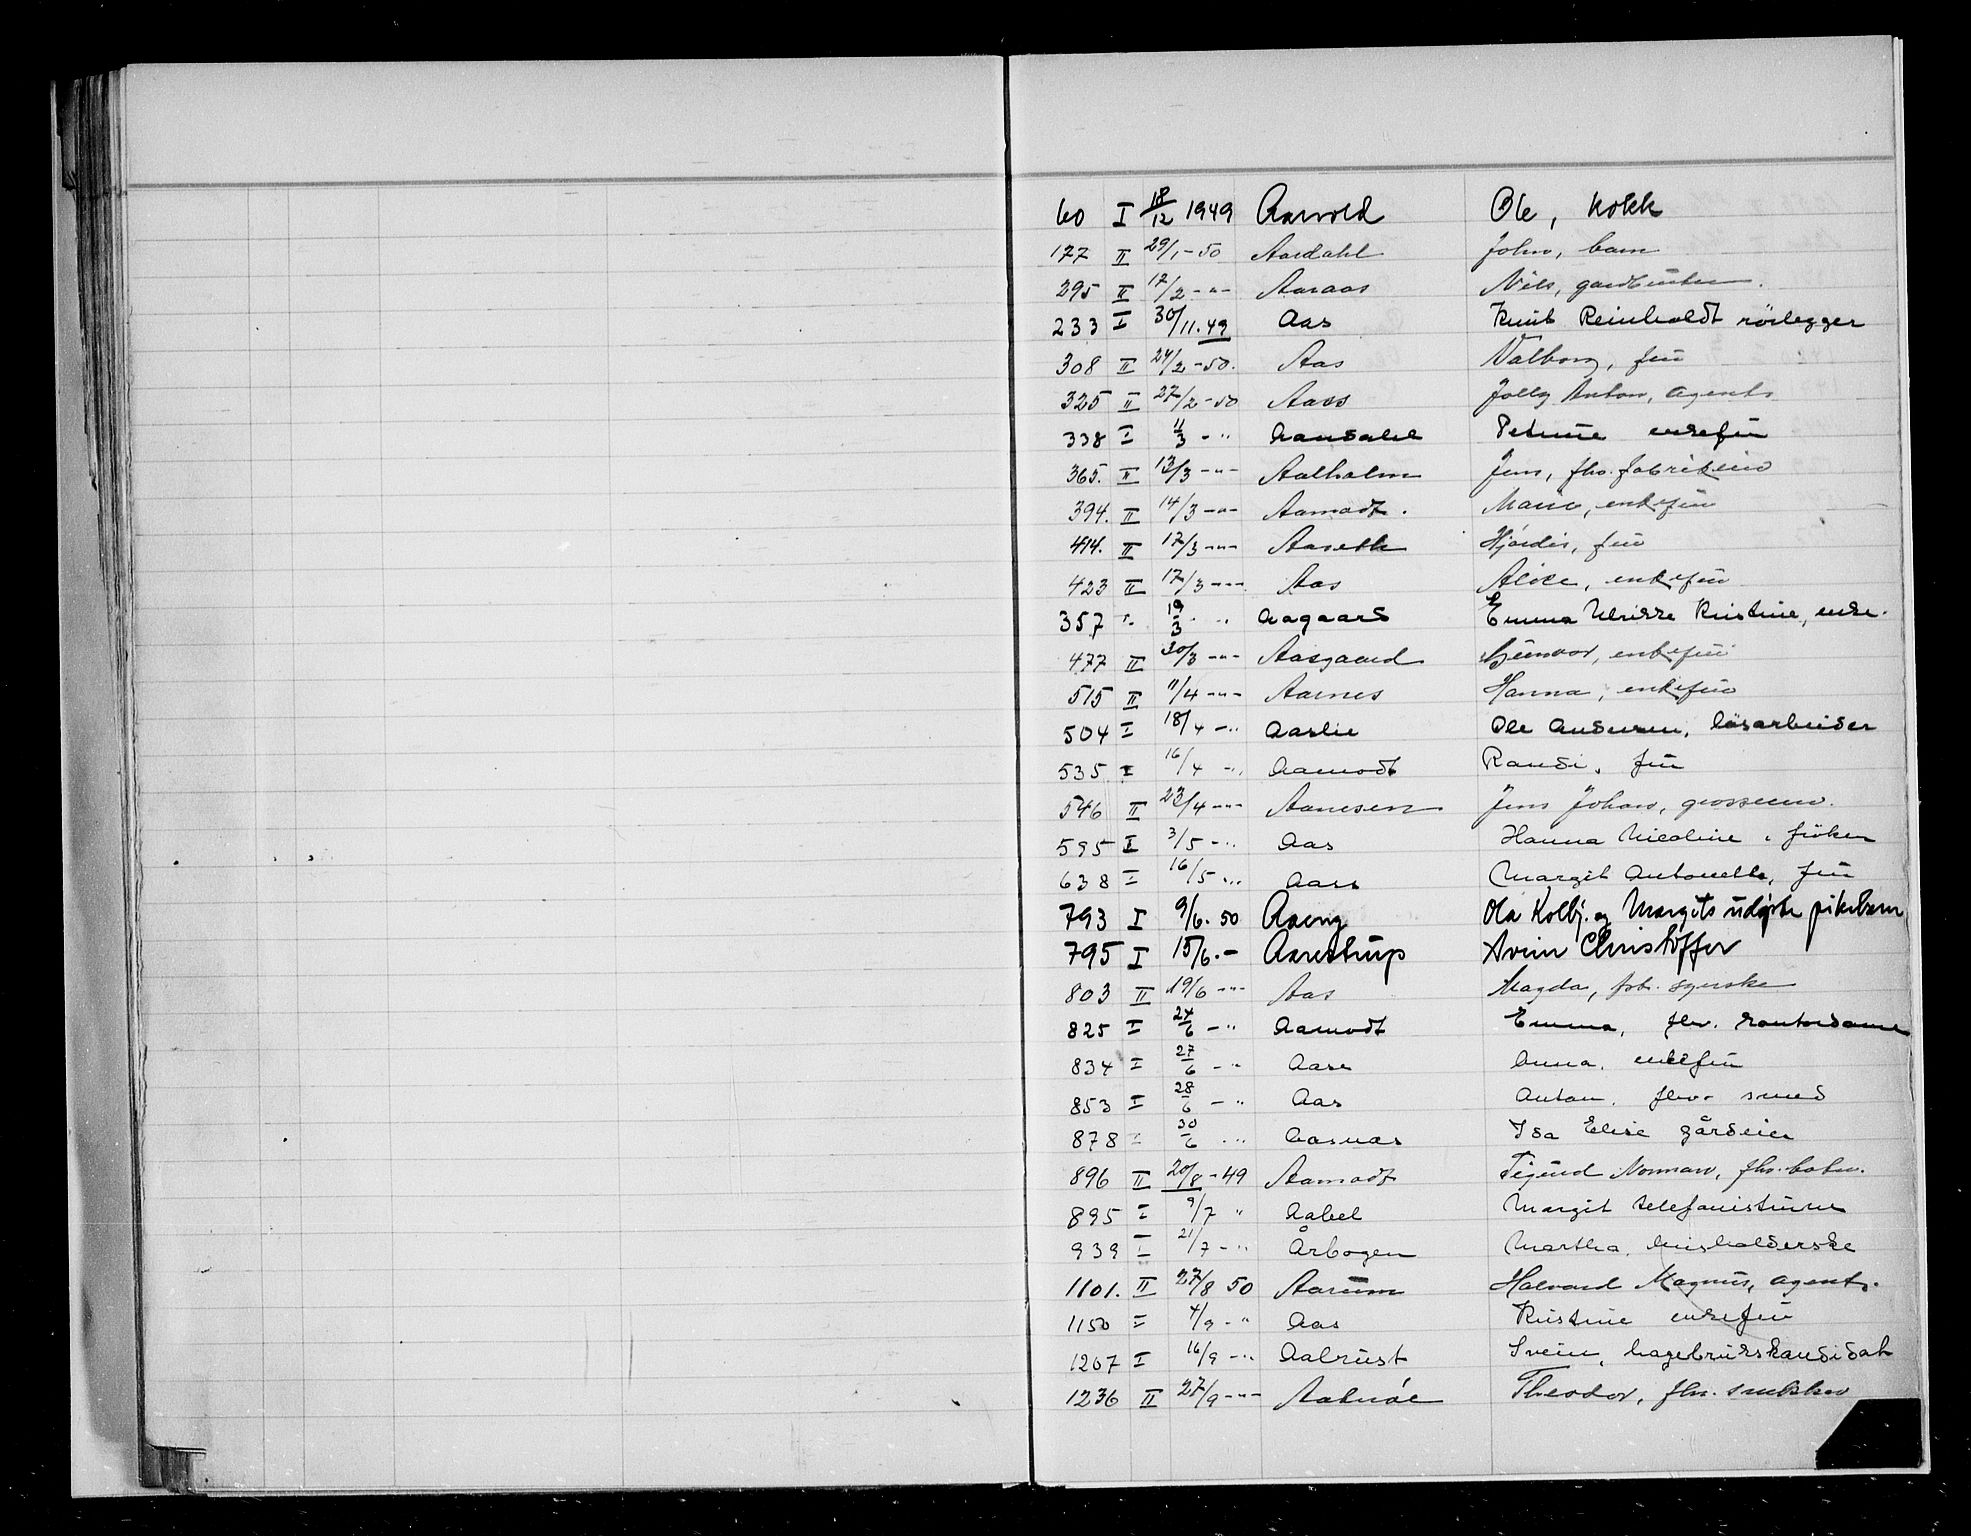 60 I 18/12 1949 Aarvold Ole, kokk
177 II 29/1 - 50 Aardahl John, barn
295 II 17/2 - " - Aaraas Nils, gardbruker.
233 I 30/11.49 Aas Knut Reinholdt rörlegger
308 II 24/2 - 50. Aas Valborg, frú
325 II 27/2 - 50 Aass Jolly Anton, agent
338 I 11/3 - " Petrine enkefrú
365. II 13/3 - " - Aalholm Jens, fhv. fabrikeier
394. II 14/3 - " - Aamodt. Marie, enkefrú
414. II 17/3 - " - Aaseth Hjördis, frú
423 II 17/3 - " - Aas Alice, enkefrú
357 I 19/3 " Aagaard Emma Ulrikke Kristine, enke.
477 II 30/3 - " - Aasgaard Gúnvor, enkefrú
515 II 11/4 - " - Aarnes Hanna, enkefrú
504 I 18/4 - " Aaslie Ole Andersen, lösarbeider
535 I 16/4 - " Aamodt Randi, frú
546 II 23/4 - " - Aanesen Jens Johan, grosserer.
595 I 3/5 - " Aas Hanna Nicoline, fröken
638 I 16/5 - " Aass Margit Antonette, frú
793 I 9/6. 50 Aaeng Ola Kolbj. og Margits udöpte pikebarn
795 I 15/6. - Aarestrup Svein Christoffer
803 II 19/6 - " - Aas Magda, syerske
825 I 24/6 - " Aamodt Emma, fhv. kontordame
834 I 27/6 - " Aase Anna, enkefrú
853 I 28/6 - " Aas Anton, fhv. smed
878 I 30/6 - " Aasnæs Ida Elise gårdeier
896 II 20/8 - 49 Aamodt Sigúrd Norman, fhv.
895 I 9/7 " Aabel Margit telefonistinne
939 I 21/7 - " Årbogen Martha, húsholderske
1101. II 27/8 50 Aarúm Halvard Magnús, agent.
1150 I 4/9 - " Aas Kristine enkefrú
1207 I 16/9 - " Aabrúst Svein, hagebrúkskandidat
1236 II 27/9 - " - Theodor, fhv. snekker